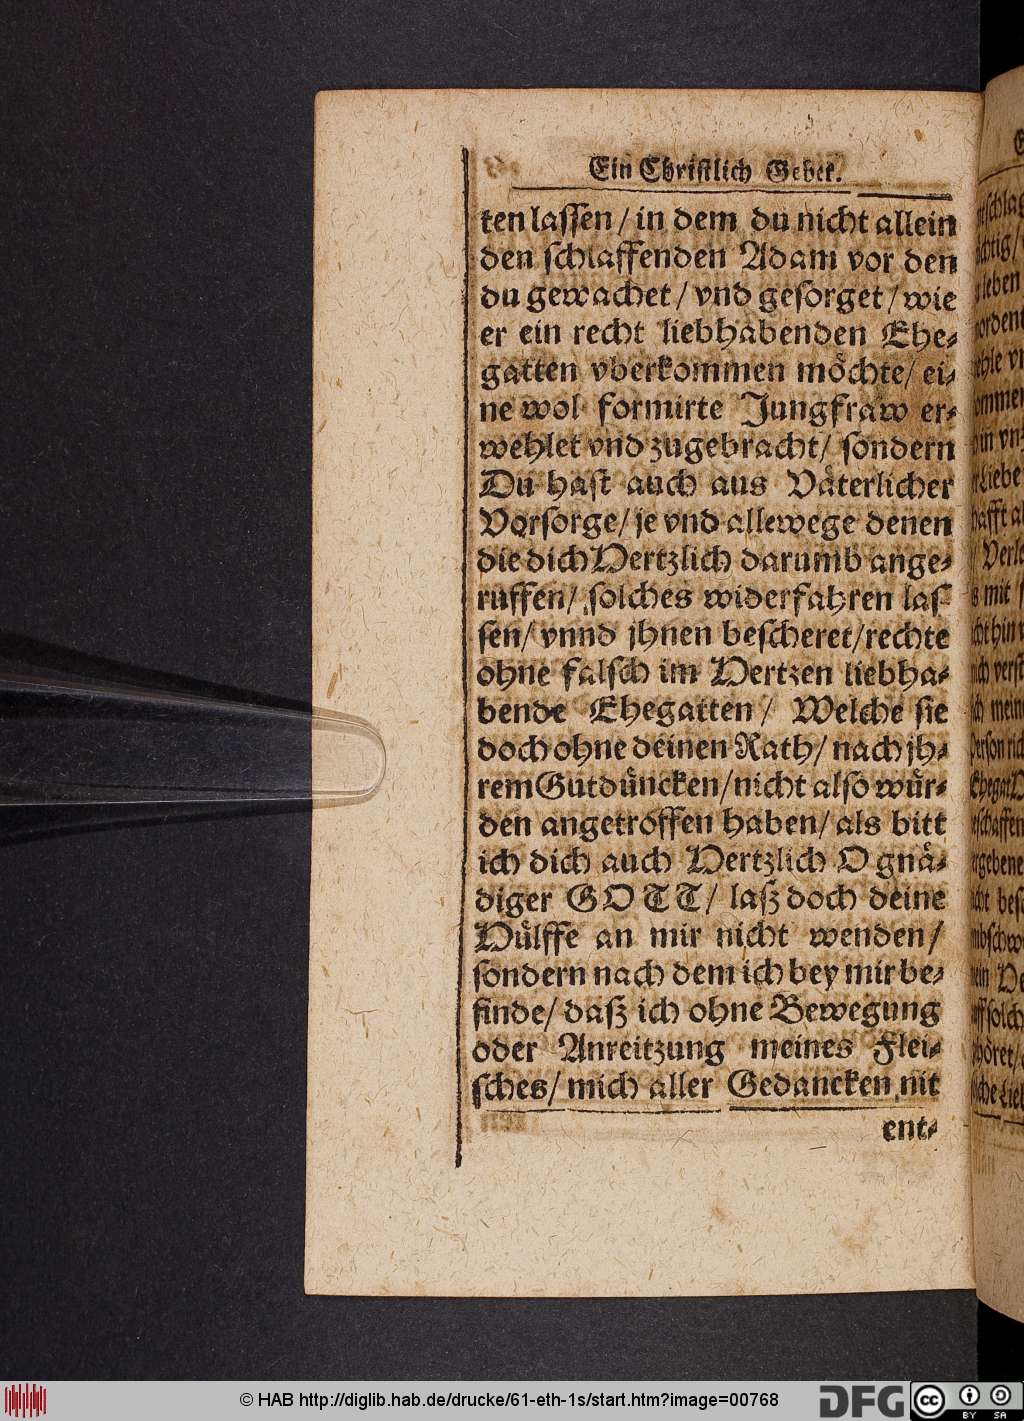 Ein Christlich Gebet.
ten lassen / in dem du nicht allein
den schlaffenden Adam vor den
du gewachet / vnd gesorget / wie
er ein recht liebhabenden Ehe-
gatten vberkommen möchte / ei-
ne wol formirte Jungfraw er-
wehlet vnd zugebracht / sondern
Du hast auch aus Väterlicher
Vorsorge / je vnd allewege denen
die dich Hertzlich darumb ange-
ruffen / solches widerfahren las-
sen / vnnd jhnen bescheret / rechte
ohne falsch im Hertzen liebha-
bende Ehegatten / Welche sie
doch ohne deinen Rath / nach jh-
rem Gutdüncken / nicht also wür-
den angetroffen haben / als bitt
ich dich auch Hertzlich O gnä-
diger GOTT / laß doch deine
Hülffe an mir nicht wenden /
sondern nach dem ich bey mir be-
finde / daß ich ohne Bewegung
oder Anreitzung meines Flei-
sches / mich aller Gedancken nit
ent-
© HAB http://diglib.hab.de/drucke/61-eth-1s/start.htm?image=00768
DFG
cc
BY SA